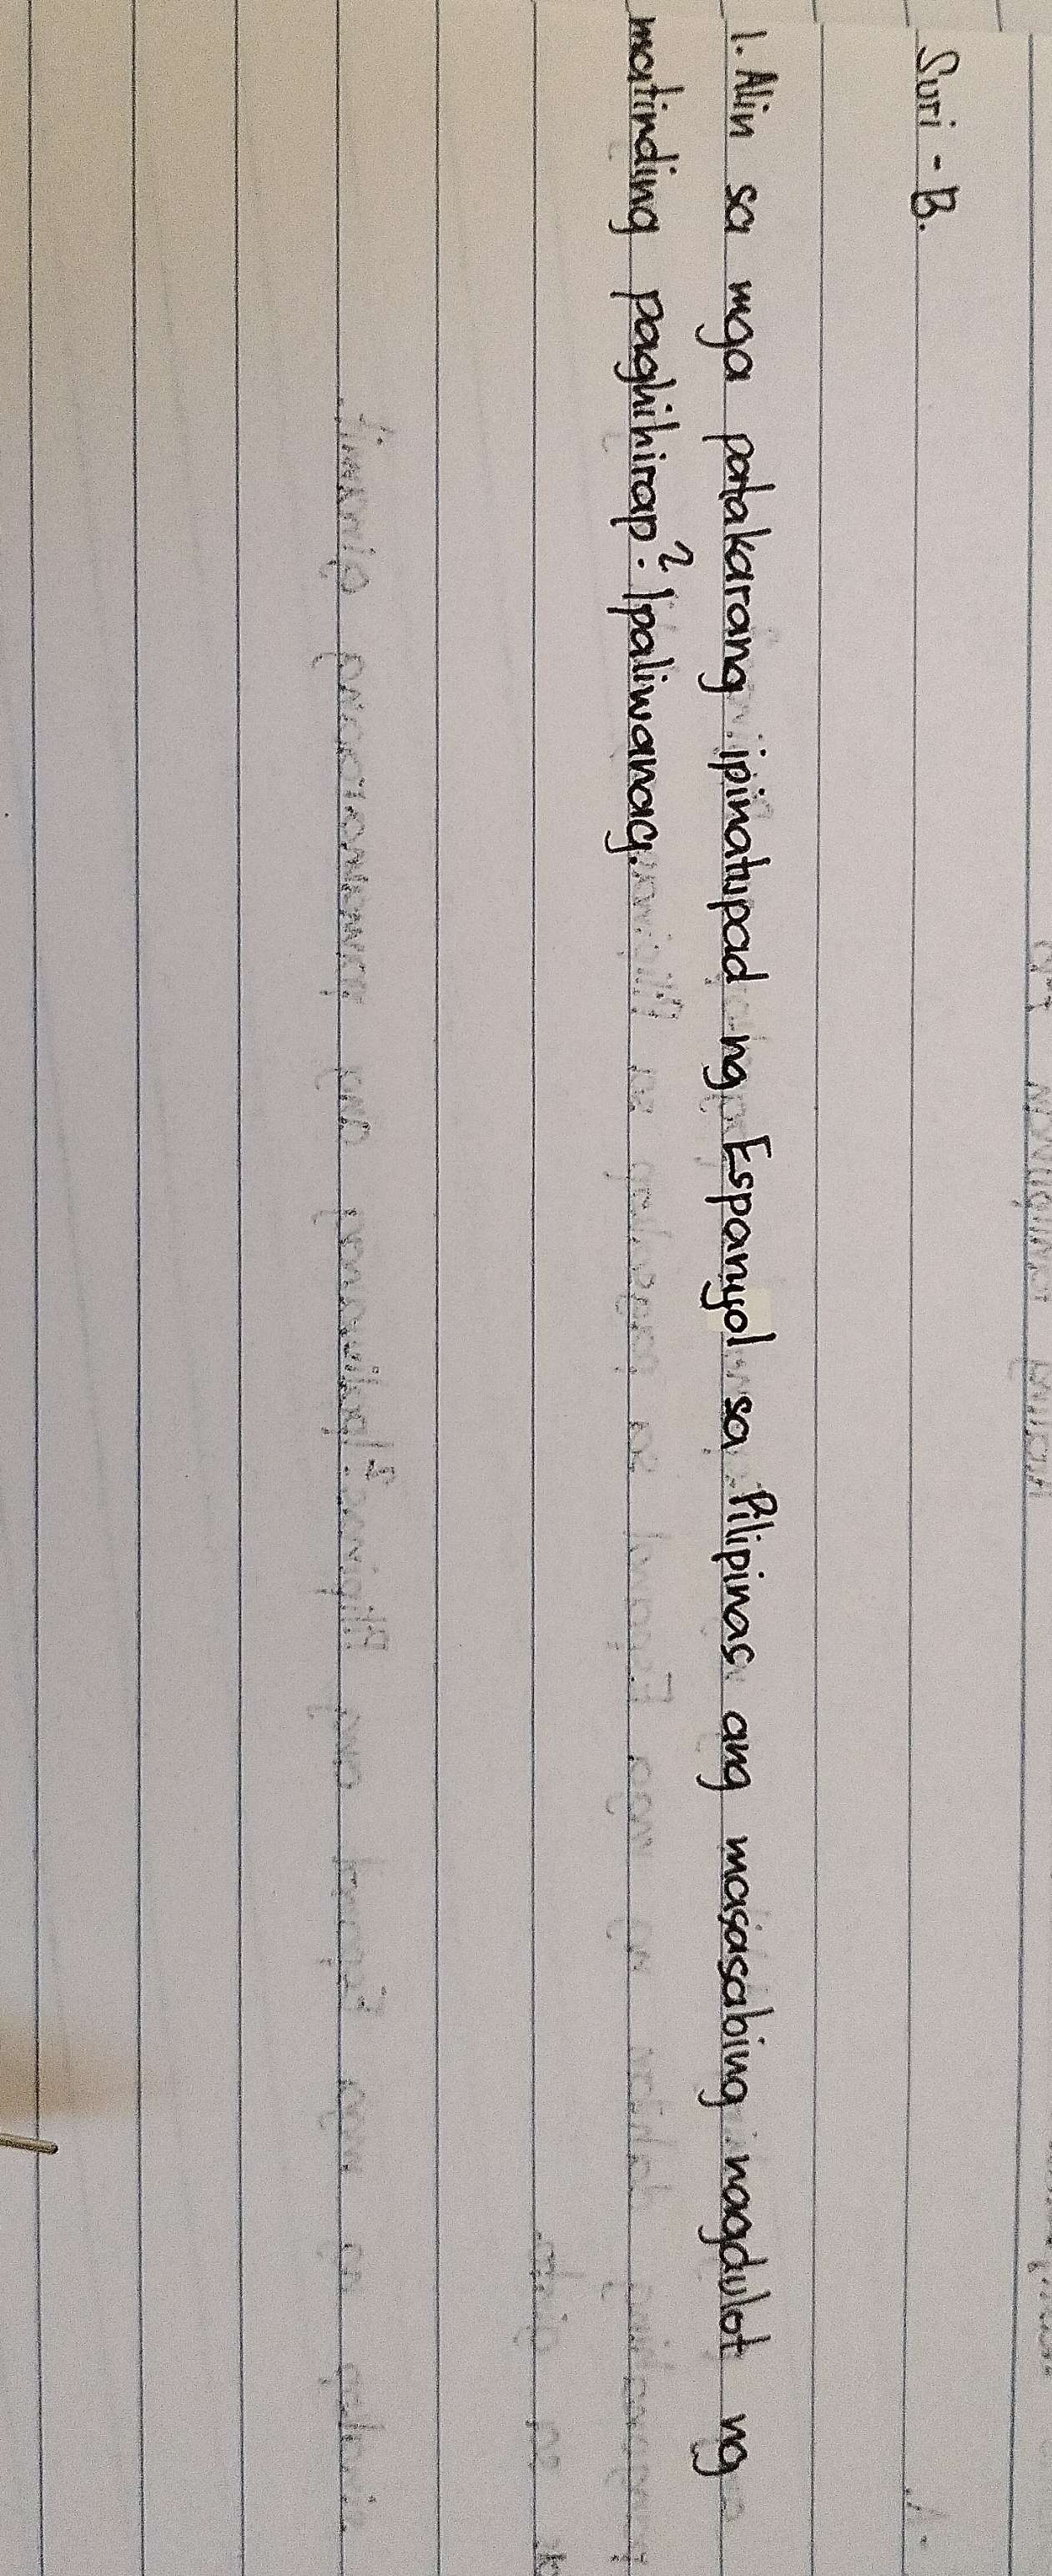 Suri - B.
1. Alin sa mga patakarang ipinatupad ng Espanyol sa Pilipinas ang masasabing nagdulot ng
matinding paghihirap? Ipaliwanag.